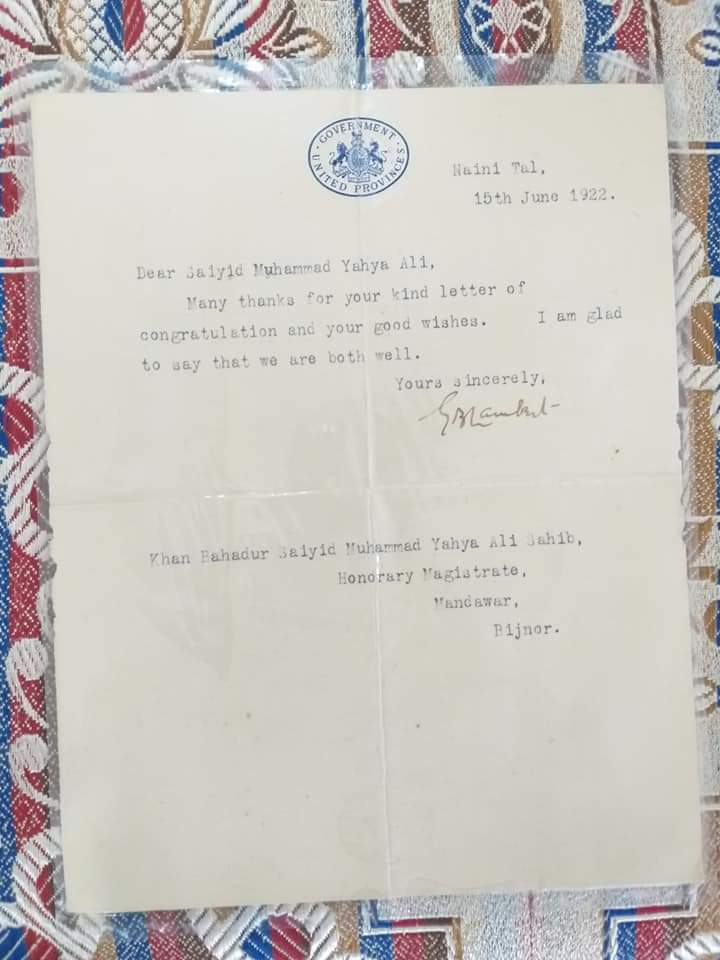 GOVERNMENT
UNITED PROVINCES
Naini Tal,
15th June 1922.
Dear Saiyid Muhammad Yahya Ali,
Many thanks for your kind letter of
congratulation and your good wishes. I am glad
to say that we are both well.
Yours sincerely,
G B Lambert
Khan Bahadur Saiyid Muhammad Yahya Ali Sahib,
Honorary Magistrate,
Mandawar,
Bijnor.